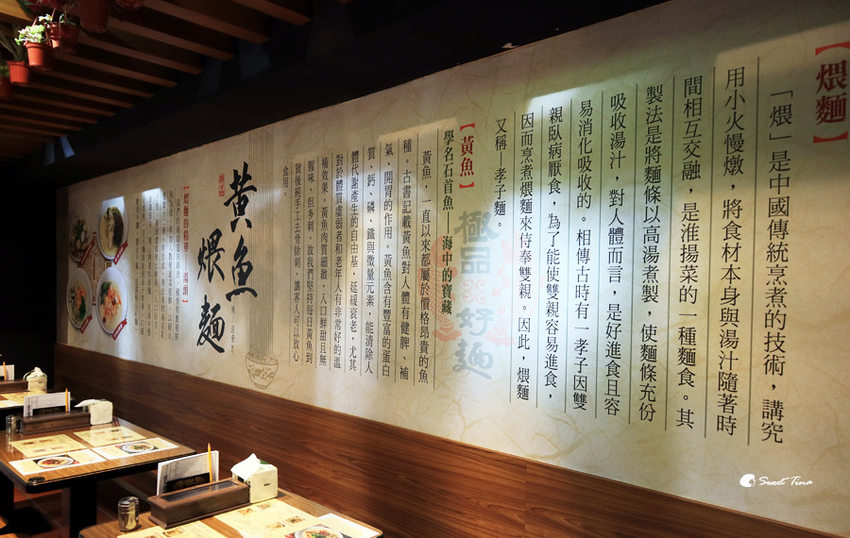 【煨麵】
「煨」是中國傳統烹煮的技術，講究
用小火慢燉，將食材本身與湯汁隨著時
間相互交融，是淮揚菜的一種麵食。其
製法是將麵條以高湯煮製，使麵條充份
吸收湯汁，對人體而言，是好進食且容
易消化吸收的。相傳古時有一孝子因雙
親臥病厭食，為了能使雙親容易進食，
因而烹煮煨麵來侍奉雙親。因此，煨麵
又稱—孝子麵。
極品好麵
【黃魚】
學名石首魚——海中的寶藏
黃魚，一直以來都屬於價格昂貴的魚
種。古書記載黃魚對人體有健脾、補
氣、開胃的作用。黃魚含有豐富的蛋白
質、鈣、磷、鐵與微量元素，能清除人
體代謝產生的自由基，延緩衰老，尤其
對於體質虛弱者和老年人有非常好的溫
補效果。黃魚肉質細緻，入口鮮甜且無
腥味，但多刺，故我們堅持每日黃魚到
貨後純手工去骨除刺，讓客人可以放心
食用。
黃魚
煨麵
【煨麵的精華—湯頭】
Sweet Tina